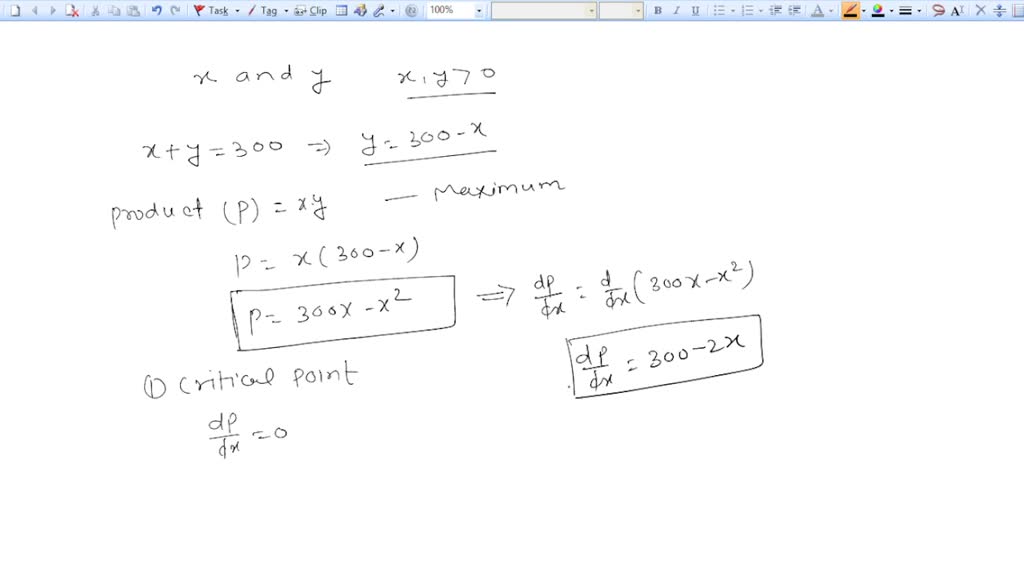 Task Tag Clip 100% B I U A A
x and y x, y > 0
x + y = 300 ⇒ y = 300 - x
product (P) = x.y — Maximum
P = x(300 - x)
P = 300x - x² ⇒ dP/dx = d/dx (300x - x²)
dP/dx = 300 - 2x
① Critical point
dP/dx = 0